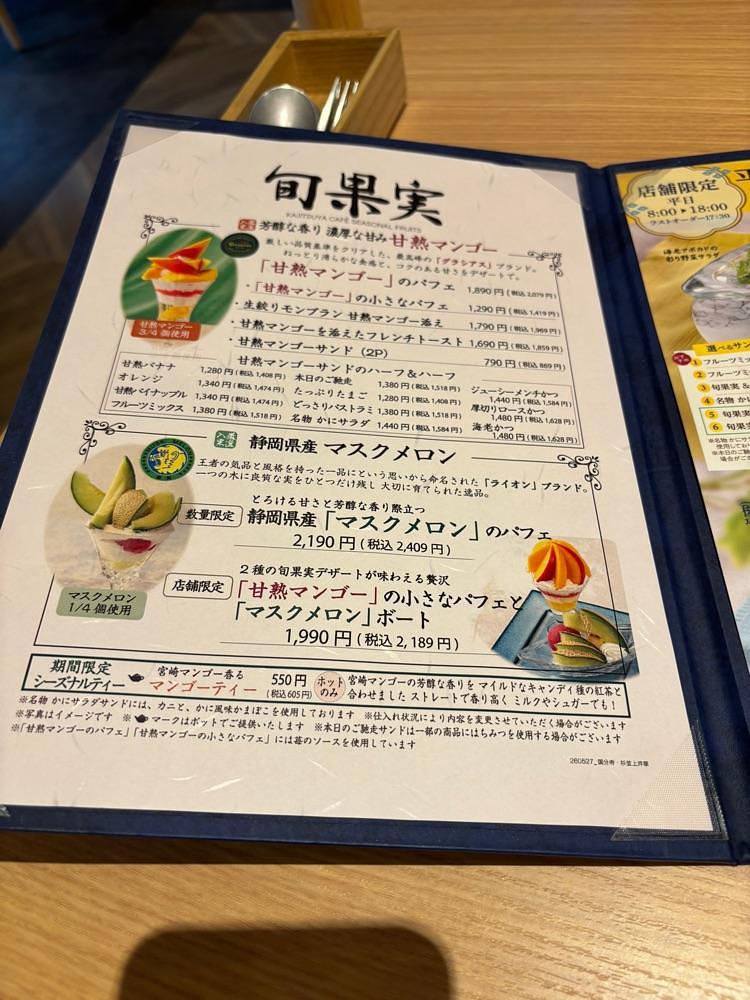 旬果実
KAJITSUYA CAFÉ SEASONAL FRUITS
芳醇な香り 濃厚な甘み 甘熟マンゴー
厳しい品質基準をクリアした、最高峰の「グラシアス」ブランド。
ねっとり滑らかな食感と、コクのある甘さをデザートで。
「甘熟マンゴー」のパフェ 1,890円(税込2,079円)
・「甘熟マンゴー」の小さなパフェ 1,290円(税込1,419円)
・生絞りモンブラン 甘熟マンゴー添え 1,790円(税込1,969円)
・甘熟マンゴーを添えたフレンチトースト 1,690円(税込1,859円)
・甘熟マンゴーサンド(2P) 790円(税込869円)
甘熟マンゴー
3/4個使用
甘熟マンゴーサンドのハーフ&ハーフ
甘熟バナナ 1,280円(税込1,408円)
オレンジ 1,340円(税込1,474円)
甘熟パイナップル 1,340円(税込1,474円)
フルーツミックス 1,380円(税込1,518円)
本日のご馳走 1,380円(税込1,518円)
たっぷりたまご 1,280円(税込1,408円)
どっさりパストラミ 1,380円(税込1,518円)
名物 かにサラダ 1,440円(税込1,584円)
ジューシーメンチかつ
1,440円(税込1,584円)
厚切りロースかつ
1,480円(税込1,628円)
海老かつ
1,480円(税込1,628円)
静岡県産 マスクメロン
王者の気品と風格を持った一品にという思いから命名された「ライオン」ブランド。
一つの木に良質な実をひとつだけ残し 大切に育てられた逸品。
とろける甘さと芳醇な香り際立つ
数量限定 静岡県産「マスクメロン」のパフェ
2,190円(税込2,409円)
マスクメロン
1/4個使用
2種の旬果実デザートが味わえる贅沢
店舗限定 「甘熟マンゴー」の小さなパフェと
「マスクメロン」ボート
1,990円(税込2,189円)
期間限定
シーズナルティー
宮崎マンゴー香る
マンゴーティー
550円
(税込605円)
ホット
のみ
宮崎マンゴーの芳醇な香りを マイルドなキャンディ種の紅茶と
合わせました ストレートで香り高く ミルクやシュガーでも!
※名物 かにサラダサンドには、カニと、かに風味かまぼこを使用しております ※仕入れ状況により内容を変更させていただく場合がございます
※写真はイメージです ※ マークはポットでご提供いたします ※本日のご馳走サンドは一部の商品にはちみつを使用する場合がございます
※「甘熟マンゴーのパフェ」「甘熟マンゴーの小さなパフェ」には苺のソースを使用しています
店舗限定
平日
8:00▸18:00
ラストオーダー17:30
海老アボカドの
彩り野菜サラダ
選べるサン
1 フルーツミ
2 フルーツミ
3 旬果実
4 名物 か
5 旬果実
6 旬果実